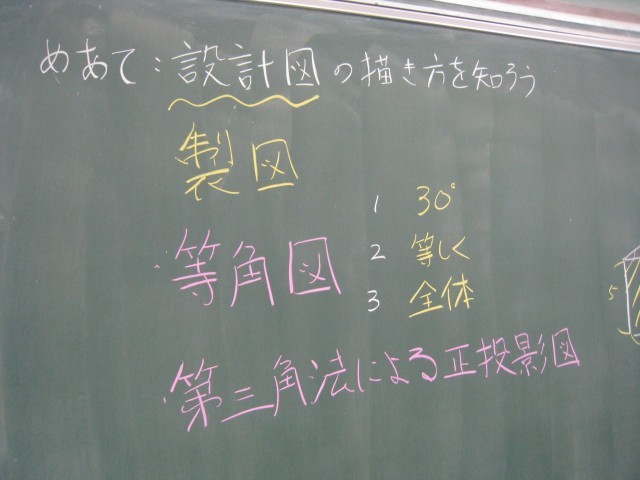 めあて:設計図の描き方を知ろう
製図
1 30°
・等角図 2 等しく
3 全体
5
・第三角法による正投影図